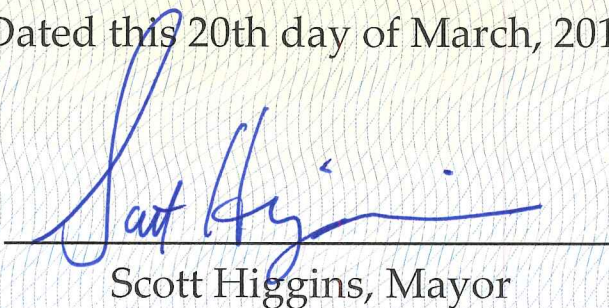 Dated this 20th day of March, 201
Scott Higgins
Scott Higgins, Mayor